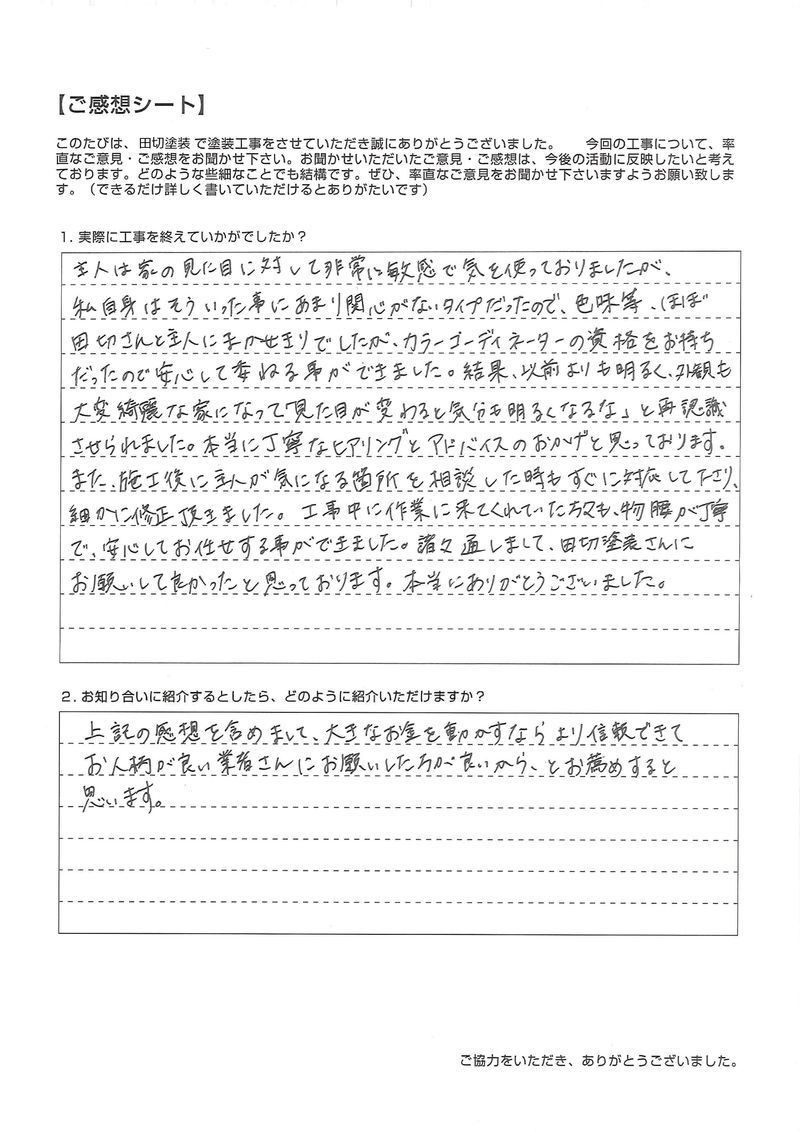 【ご感想シート】
このたびは、田切塗装 で塗装工事をさせていただき誠にありがとうございました。　今回の工事について、率
直なご意見・ご感想をお聞かせ下さい。お聞かせいただいたご意見・ご感想は、今後の活動に反映したいと考え
ております。どのような些細なことでも結構です。ぜひ、率直なご意見をお聞かせ下さいますようお願い致しま
す。（できるだけ詳しく書いていただけるとありがたいです）
1. 実際に工事を終えていかがでしたか？
主人は家の見た目に対して非常に敏感で気を使っておりましたが、
私自身はそういった事にあまり関心がないタイプだったので、色味等、ほぼ
田切さんと主人にまかせきりでしたが、カラーコーディネーターの資格をお持ち
だったので安心して委ねる事ができました。結果、以前よりも明るく、外観も
大変綺麗な家になって「見た目が変わると気分も明るくなるな」と再認識
させられました。本当に丁寧なヒアリングとアドバイスのおかげと思っております。
また、施工後に主人が気になる箇所を相談した時もすぐに対応して下さり、
細かに修正頂きました。工事中に作業に来てくれていた方々も、物腰が丁寧
で、安心してお任せする事ができました。諸々通しまして、田切塗装さんに
お願いして良かったと思っております。本当にありがとうございました。
2. お知り合いに紹介するとしたら、どのように紹介いただけますか？
上記の感想を含めまして、大きなお金を動かすならより信頼できて
お人柄が良い業者さんにお願いした方が良いから、とお薦めすると
思います。
ご協力をいただき、ありがとうございました。